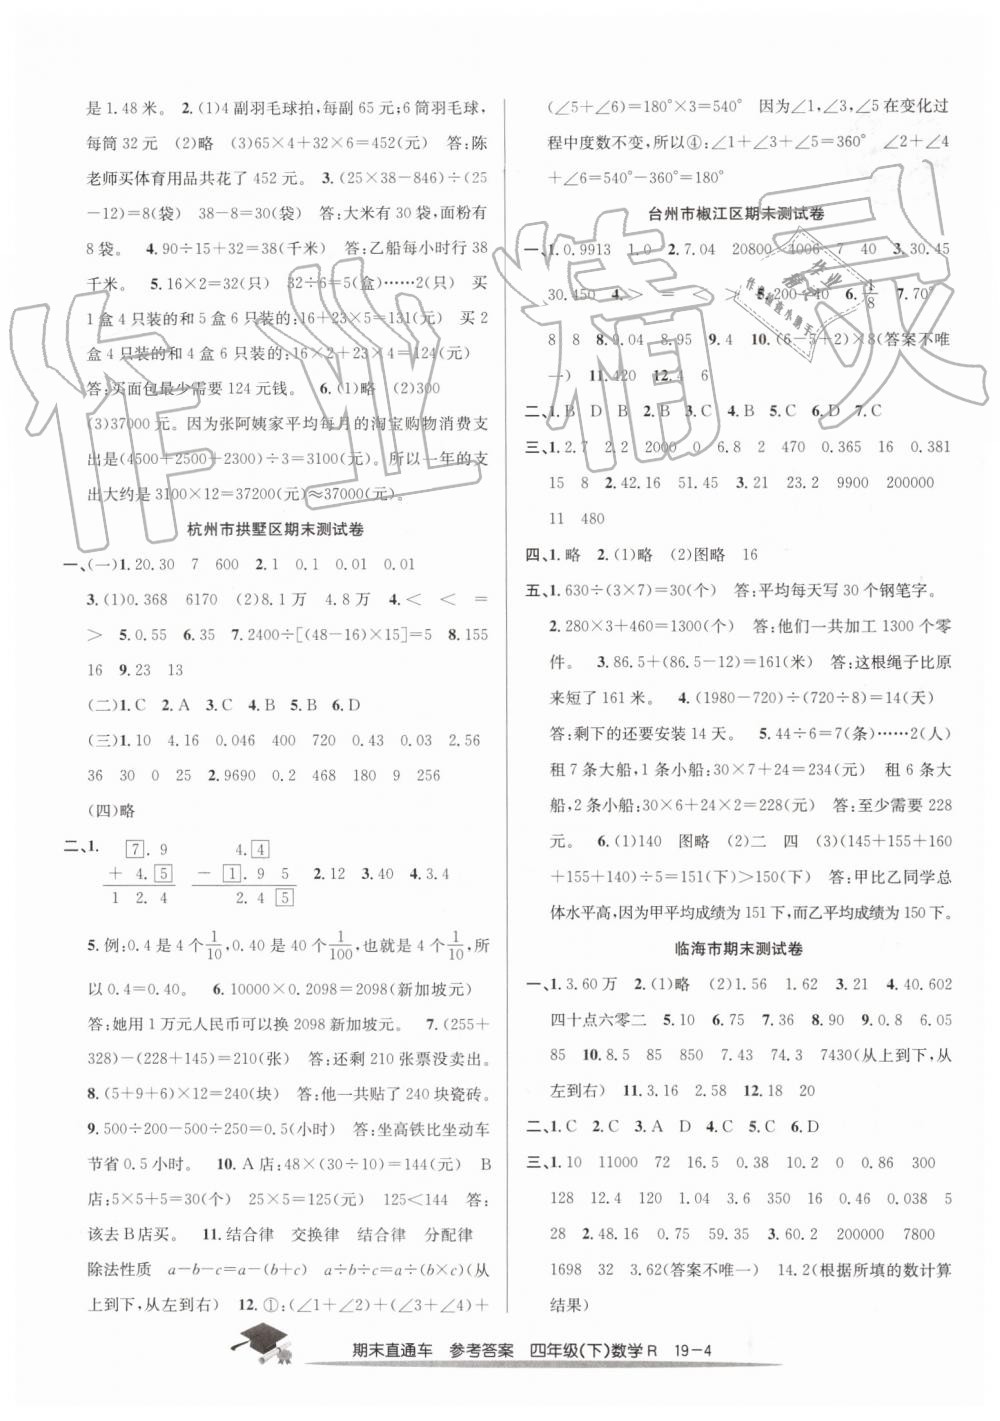 是 1.48 米。 2.(1)4 副羽毛球拍,每副 65 元;6 筒羽毛球,
每筒 32 元 (2)略 (3)65×4+32×6=452(元) 答:陈
老师买体育用品共花了 452 元。 3.(25×38-846)÷(25
-12)=8(袋) 38-8=30(袋) 答:大米有 30 袋,面粉有
8 袋。 4.90÷15+32=38(千米) 答:乙船每小时行 38
千米。 5.16×2=32(只) 32÷6=5(盒)……2(只) 买
1 盒 4 只装的和 5 盒 6 只装的:16+23×5=131(元) 买 2
盒 4 只装的和 4 盒 6 只装的:16×2+23×4=124(元)
答:买面包最少需要 124 元钱。 6.(1)略 (2)300
(3)37000 元。因为张阿姨家平均每月的淘宝购物消费支
出是(4500+2500+2300)÷3=3100(元)。所以一年的支
出大约是 3100×12=37200(元)≈37000(元)。
杭州市拱墅区期末测试卷
一、(一)1.20.30 7 600 2.1 0.1 0.01 0.01
3.(1)0.368 6170 (2)8.1 万 4.8 万 4.< < =
> 5.0.55 6.35 7.2400÷[(48-16)×15]=5 8.155
16 9.23 13
(二)1.C 2.A 3.C 4.B 5.B 6.D
(三)1.10 4.16 0.046 400 720 0.43 0.03 2.56
36 30 0 25 2.9690 0.2 468 180 9 256
(四)略
二、1. 7.9 4.4
+ 4.5 - 1.9 5 2.12 3.40 4.3.4
1 2.4 2.4 5
5.例:0.4 是 4 个1/10,0.40 是 40 个1/100,也就是 4 个1/10,所
以 0.4=0.40。 6.10000×0.2098=2098(新加坡元)
答:她用 1 万元人民币可以换 2098 新加坡元。 7.(255+
328)-(228+145)=210(张) 答:还剩 210 张票没卖出。
8.(5+9+6)×12=240(块) 答:他一共贴了 240 块瓷砖。
9.500÷200-500÷250=0.5(小时) 答:坐高铁比坐动车
节省 0.5 小时。 10.A 店:48×(30÷10)=144(元) B
店:5×5+5=30(个) 25×5=125(元) 125<144 答:
该去 B 店买。 11.结合律 交换律 结合律 分配律
除法性质 a-b-c=a-(b+c) a÷b÷c=a÷(b×c)(从
上到下,从左到右) 12.①:(∠1+∠2)+(∠3+∠4)+
(∠5+∠6)=180°×3=540° 因为∠1,∠3,∠5 在变化过
程中度数不变,所以④:∠1+∠3+∠5=360° ∠2+∠4
+∠6=540°-360°=180°
台州市椒江区期末测试卷
一、1.0.9913 1.0 2.7.04 20800 4006 7 40 3.30.45
30.450 4.> = < > 5.200÷40 6.1/8 7.70°
8 8 8.9.04 8.95 9.4 10.(6-5+2)×8(答案不唯
一) 11.420 12.4 6
二、1.B D B 2.B 3.C 4.B 5.C 6.D 7.C
三、1.2.7 2.2 2000 0 6.8 2 470 0.365 16 0.381
15 8 2.42.16 51.45 3.21 23.2 9900 200000
11 480
四、1.略 2.(1)略 (2)图略 16
五、1.630÷(3×7)=30(个) 答:平均每天写 30 个钢笔字。
2.280×3+460=1300(个) 答:他们一共加工 1300 个零
件。 3.86.5+(86.5-12)=161(米) 答:这根绳子比原
来短了 161 米。 4.(1980-720)÷(720÷8)=14(天)
答:剩下的还要安装 14 天。 5.44÷6=7(条)……2(人)
租 7 条大船,1 条小船:30×7+24=234(元) 租 6 条大
船,2 条小船:30×6+24×2=228(元) 答:至少需要 228
元。 6.(1)140 图略 (2)二 四 (3)(145+155+160
+155+140)÷5=151(下)>150(下) 答:甲比乙同学总
体水平高,因为甲平均成绩为 151 下,而乙平均成绩为 150 下。
临海市期末测试卷
一、1.3.60 万 2.(1)略 (2)1.56 1.62 3.21 4.40.602
四十点六零二 5.10 6.75 7.36 8.90 9.0.8 6.05
85 10.8.5 850 7.43 74.3 7430(从上到下,从
左到右) 11.3.16 2.58 12.18 20
二、1.C 2.C 3.A D 4.C 5.C 6.D
三、1.10 11000 72 16.5 0.38 10.2 0 0.86 300
128 12.4 120 10 4.16 4 0.46 0.038 5
28 2.48.16 0.75 59.35 3.2.60 200000 7800
1698 32 3.62(答案不唯一) 14.2(根据所填的数计算
结果)
期末直通车 参考答案 四年级(下)数学 R 19-4
作业精灵